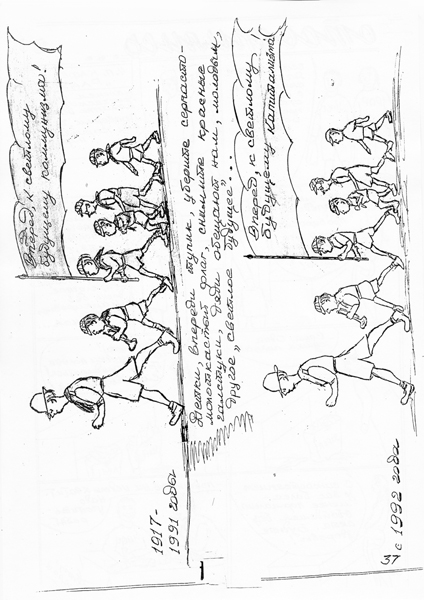 Вперед, к светлому
будущему коммунизма!
1917-
1991 годы
Детки, впереди тупик, уберите серпасто-
молоткастый флаг, снимите красные
галстуки, дяди обещают нам, молодым,
другое „светлое будущее"...
Вперед, к светлому
будущему капитализма!
с 1992 года
37